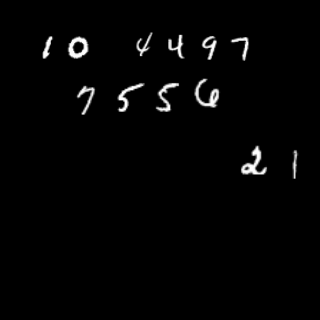 10 4497
7556
21